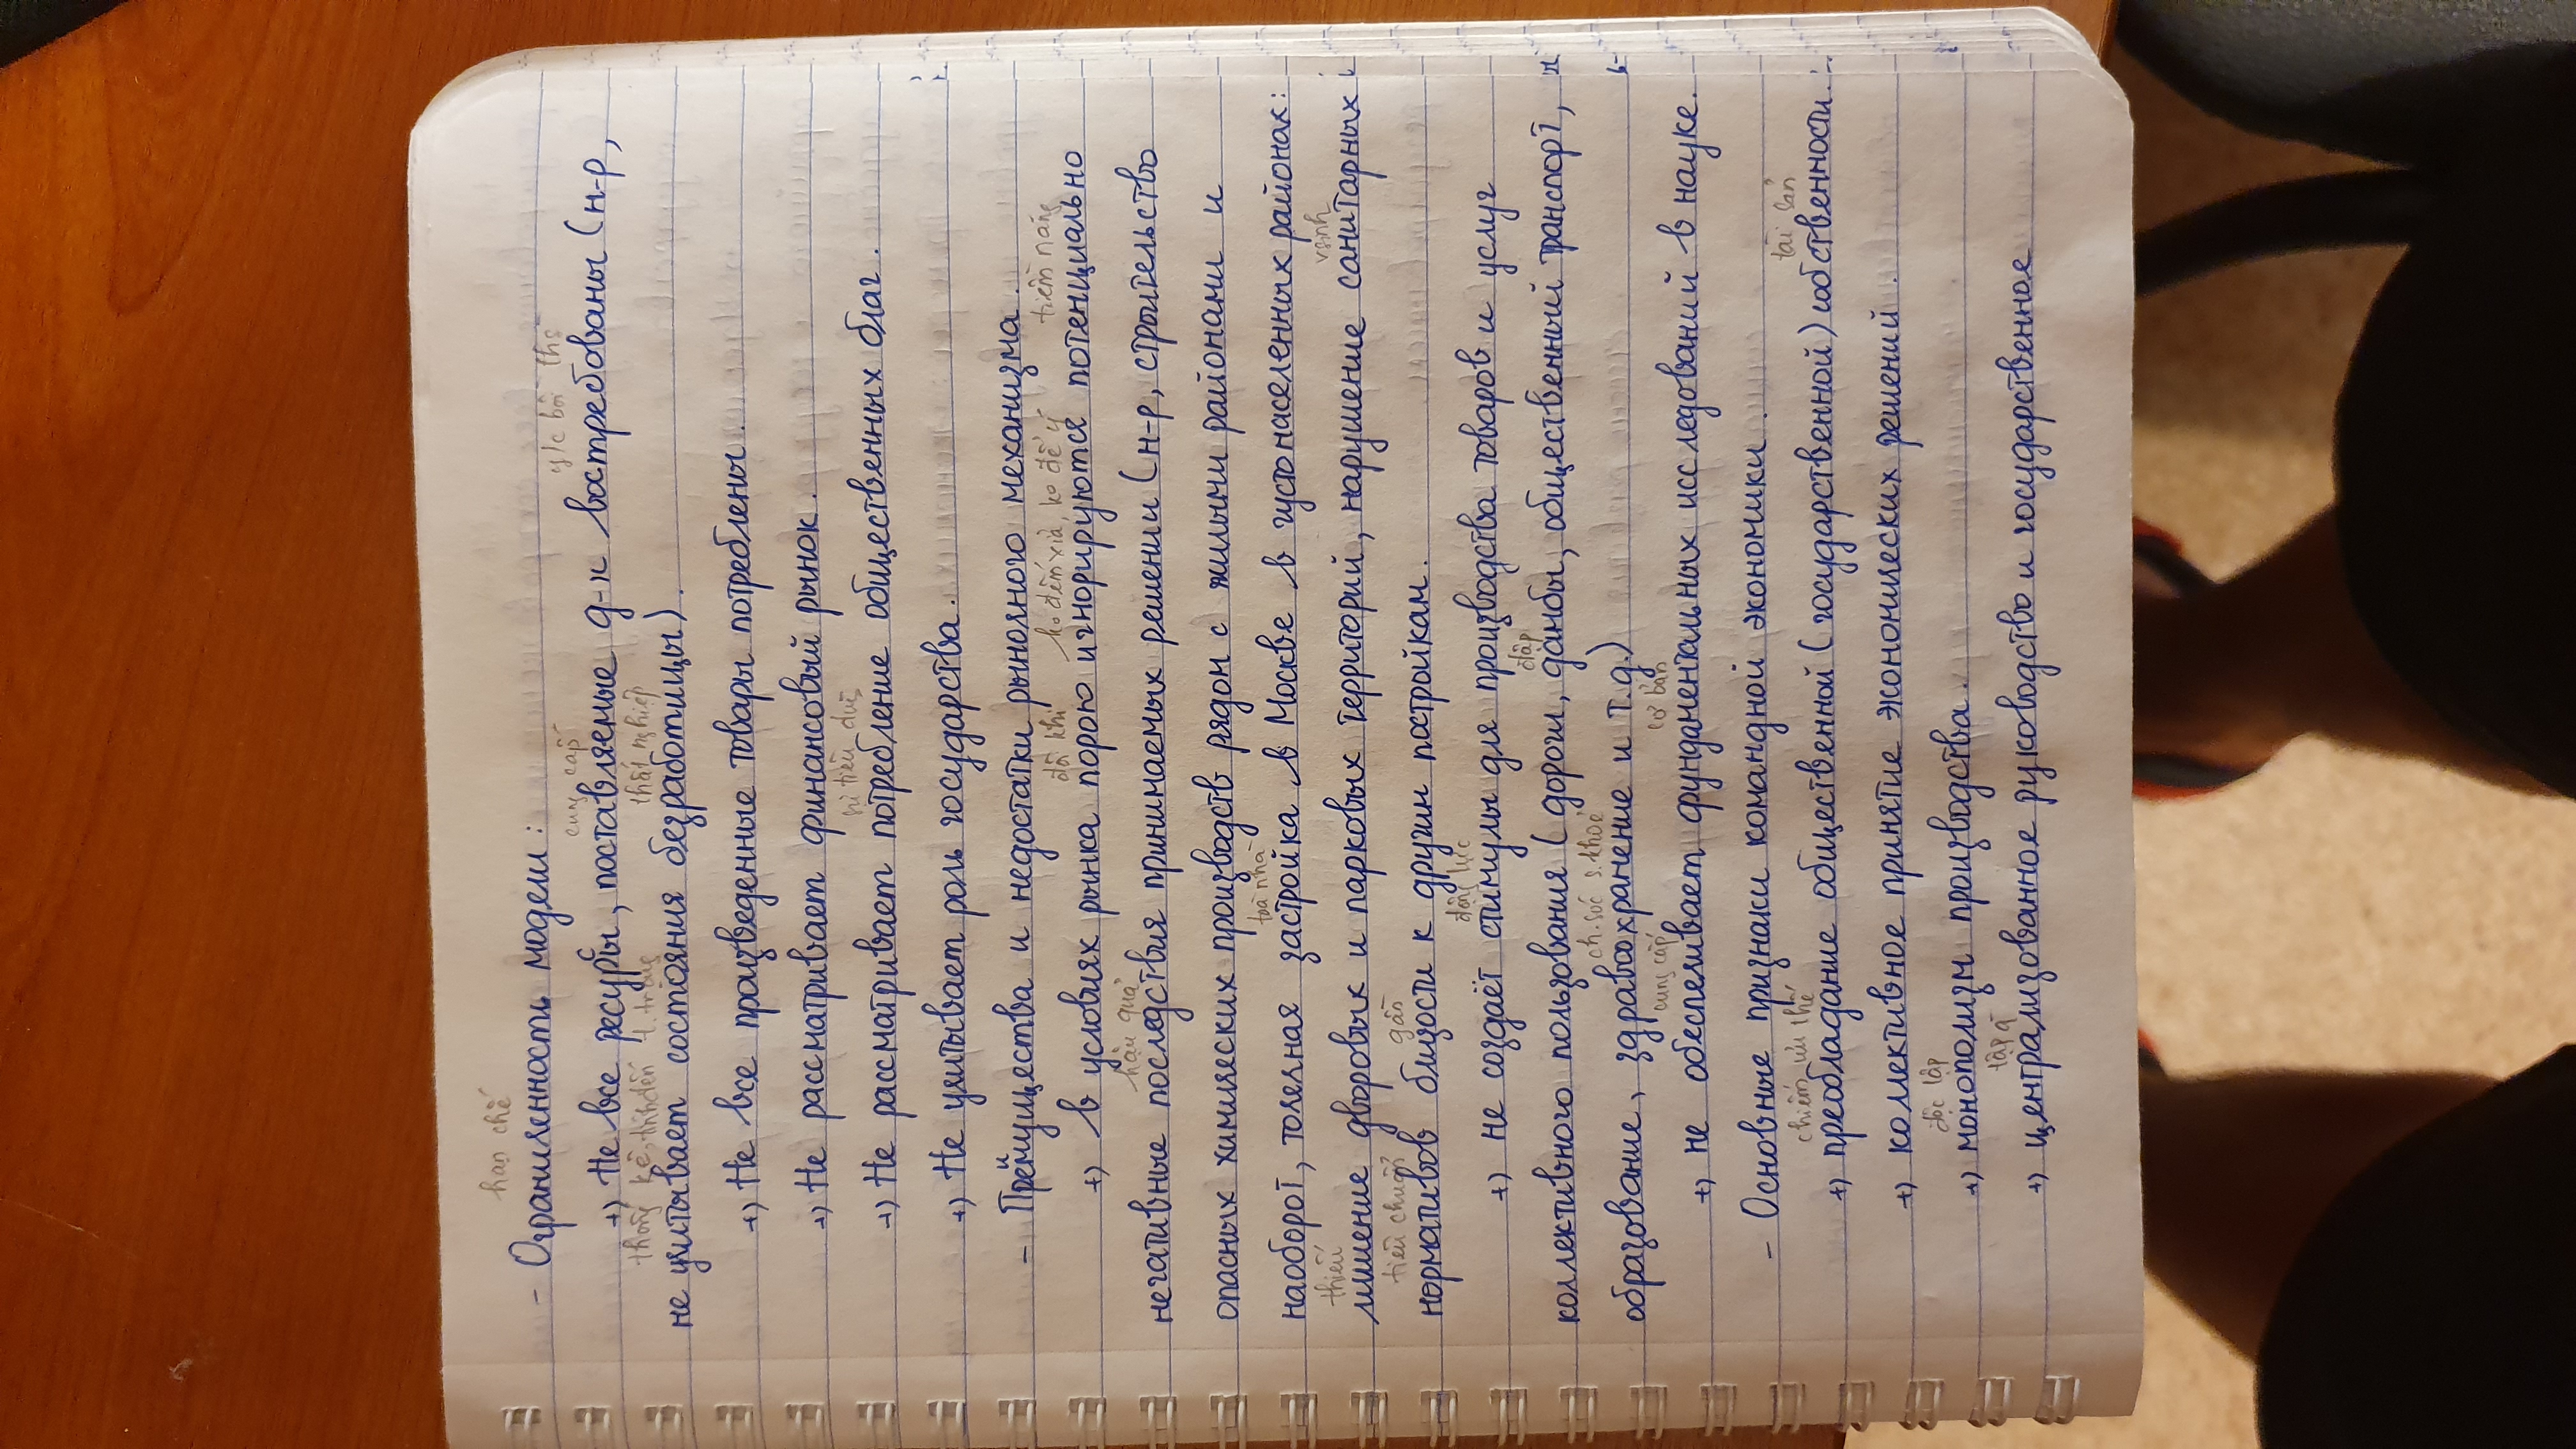 hạn chế
- Ограниченность модели:
cung cấp y/c bồi thg
+) Не все ресурсы, поставляемые д-х востребованы (н-р,
thống kê, tính đến t.trạng thất nghiệp
не учитывает состояния безработицы).
+) Не все произведенные товары потреблены.
+) Не рассматривает финансовый рынок.
sự tiêu dùng
+) Не рассматривает потребление общественных благ.
+) Не учитывает роль государства.
- Преимущества и недостатки рыночного механизма.
đôi khi ko đếm xỉa, ko để ý tiềm năng
+) в условиях рынка порою игнорируются потенциально
hậu quả
негативные последствия принимаемых решении (н-р, строительство
опасных химических производств рядом с жилыми районами и
toà nhà
наоборот, точечная застройка в Москве в густонаселенных районах:
thiếu vsinh
лишение дворовых и парковых территорий, нарушение санитарных
tiêu chuẩn gần
нормативов близости к другим постройкам.
động lực
+) не создаёт стимулы для производства товаров и услуг
đập
коллективного пользования (дороги, дамбы, общественный транспорт,
ch.sóc s.khoẻ
образование, здравоохранение и т.д.)
cung cấp cơ bản
+) не обеспечивает фундаментальных исследований в науке.
- Основные признаки командной экономики.
chiếm ưu thế tài sản
+) преобладание общественной (государственной) собственности.
+) коллективное принятие экономических решений.
độc lập
+) монополизм производства.
tập
+) централизованное руководство и государственное